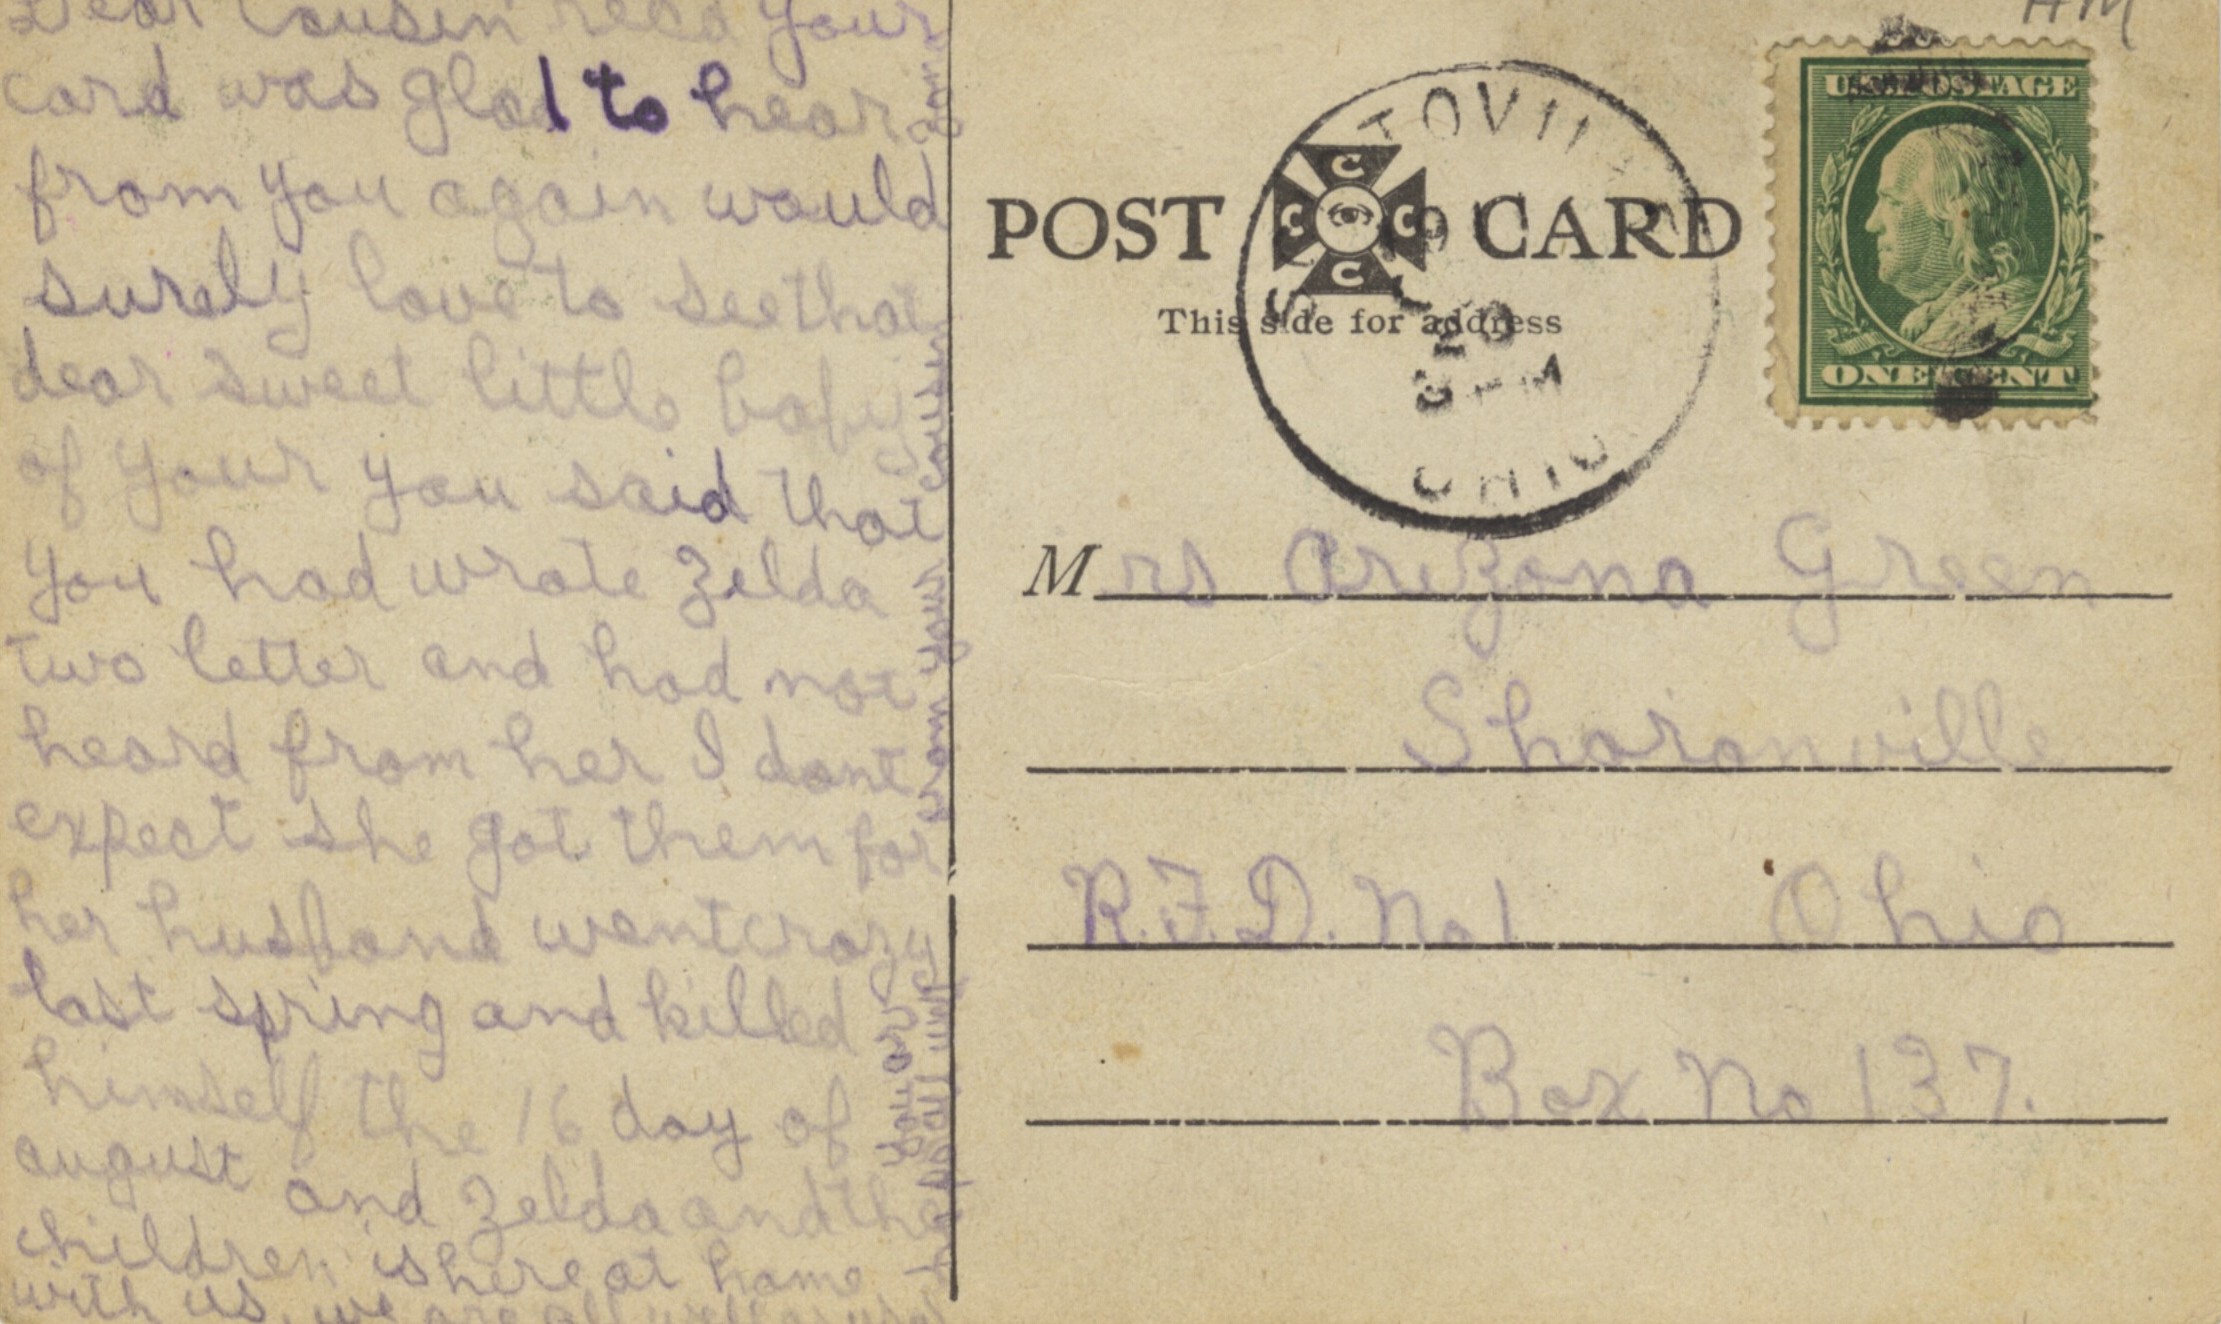 Dear Cousin recd your
card was glad to hear
from you again would
surely love to see that
dear sweet little baby
of your you said that
you had wrote Zelda
two letter and had not
heard from her I dont
expect she got them for
her husband went crazy
last spring and killed
himself the 16 day of
august and Zelda and the
children is here at home
with us. we are all well as usual
hope all well
your
from your cousin
HM
TOVILL
OHIO
POST CARD
C C C C
This side for address
U.S. POSTAGE
ONE CENT
Mrs Arizona Green
Sharonville
R.F.D. No 1 Ohio
Box No 137.